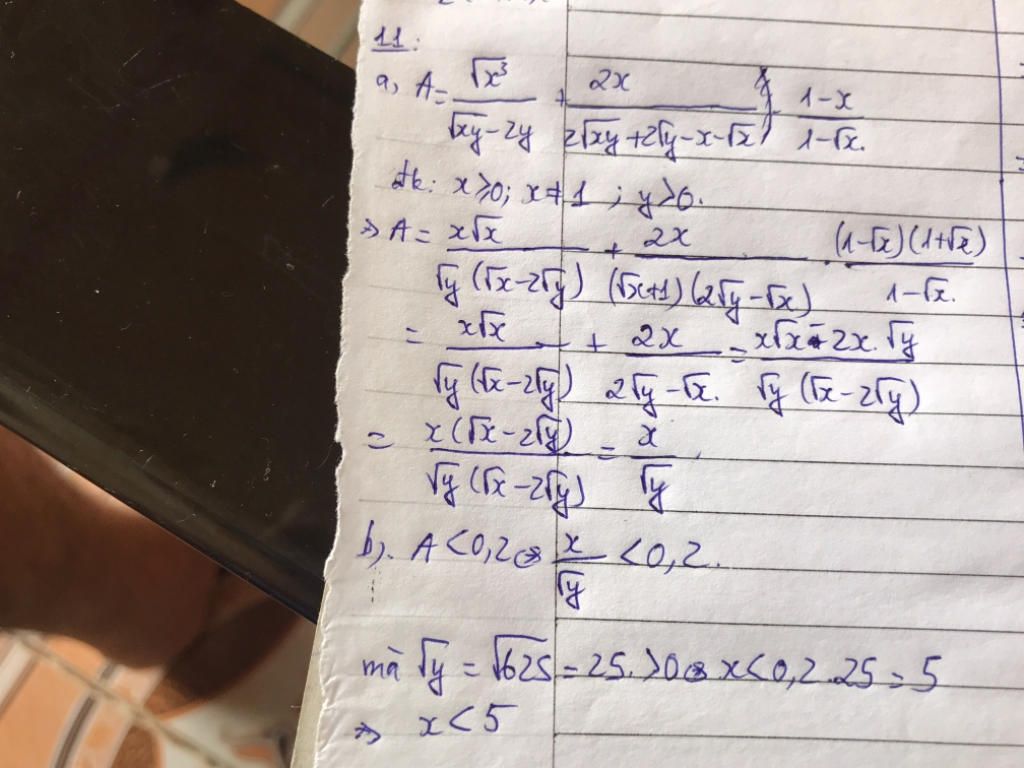 11:
a, A = √x³/(√xy - 2y) + 2x/(2√xy + 2√y - x - √x) · (1-x)/(1-√x).
đk: x ≥ 0; x ≠ 1; y > 0.
=> A = x√x/(√y (√x - 2√y)) + 2x/((√x+1)(2√y - √x)) · (1-√x)(1+√x)/(1-√x).
= x√x/(√y (√x - 2√y)) + 2x/(2√y - √x) = (x√x - 2x.√y)/(√y (√x - 2√y))
= x(√x - 2√y)/(√y (√x - 2√y)) = x/√y.
b). A < 0,2 <=> x/√y < 0,2.
mà √y = √625 = 25 > 0 <=> x < 0,2.25 = 5
=> x < 5